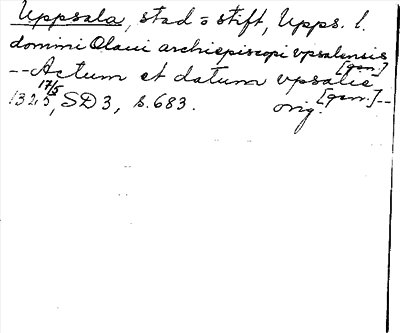 Uppsala, stad o stift, Upps. l.
domini Olaui archiepiscopi vpsalensis
[gen.]
-- Actum et datum vpsalie
[gen.] --
1325 17/5, SD 3, s. 683. orig.